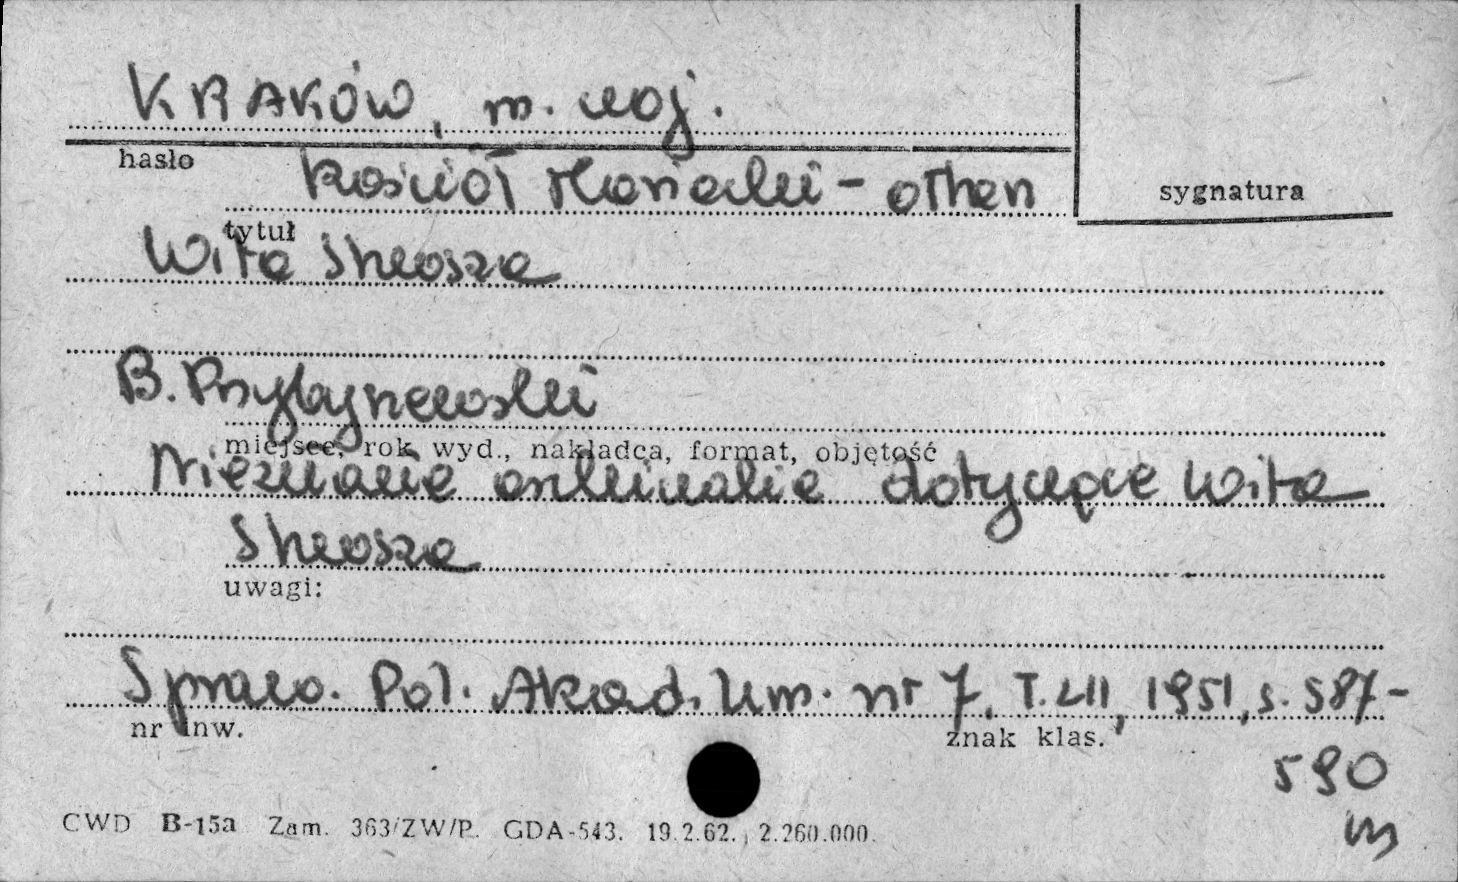 KRAKÓW, m. woj.
hasło
Kościół Mariacki - ołtarz
sygnatura
tytuł
Wita Stwosza
B. Przybyszewski
miejsce, rok wyd., nakładca, format, objętość
Nieznane archiwalia dotyczące Wita
Stwosza
uwagi:
Spraw. Pol. Akad. Um. nr 7, T. LII, 1951, s. 587-
nr inw.
znak klas.
590
m
CWD B-15a Zam. 363/ZW/P. GDA-543. 19.2.62., 2.260.000.